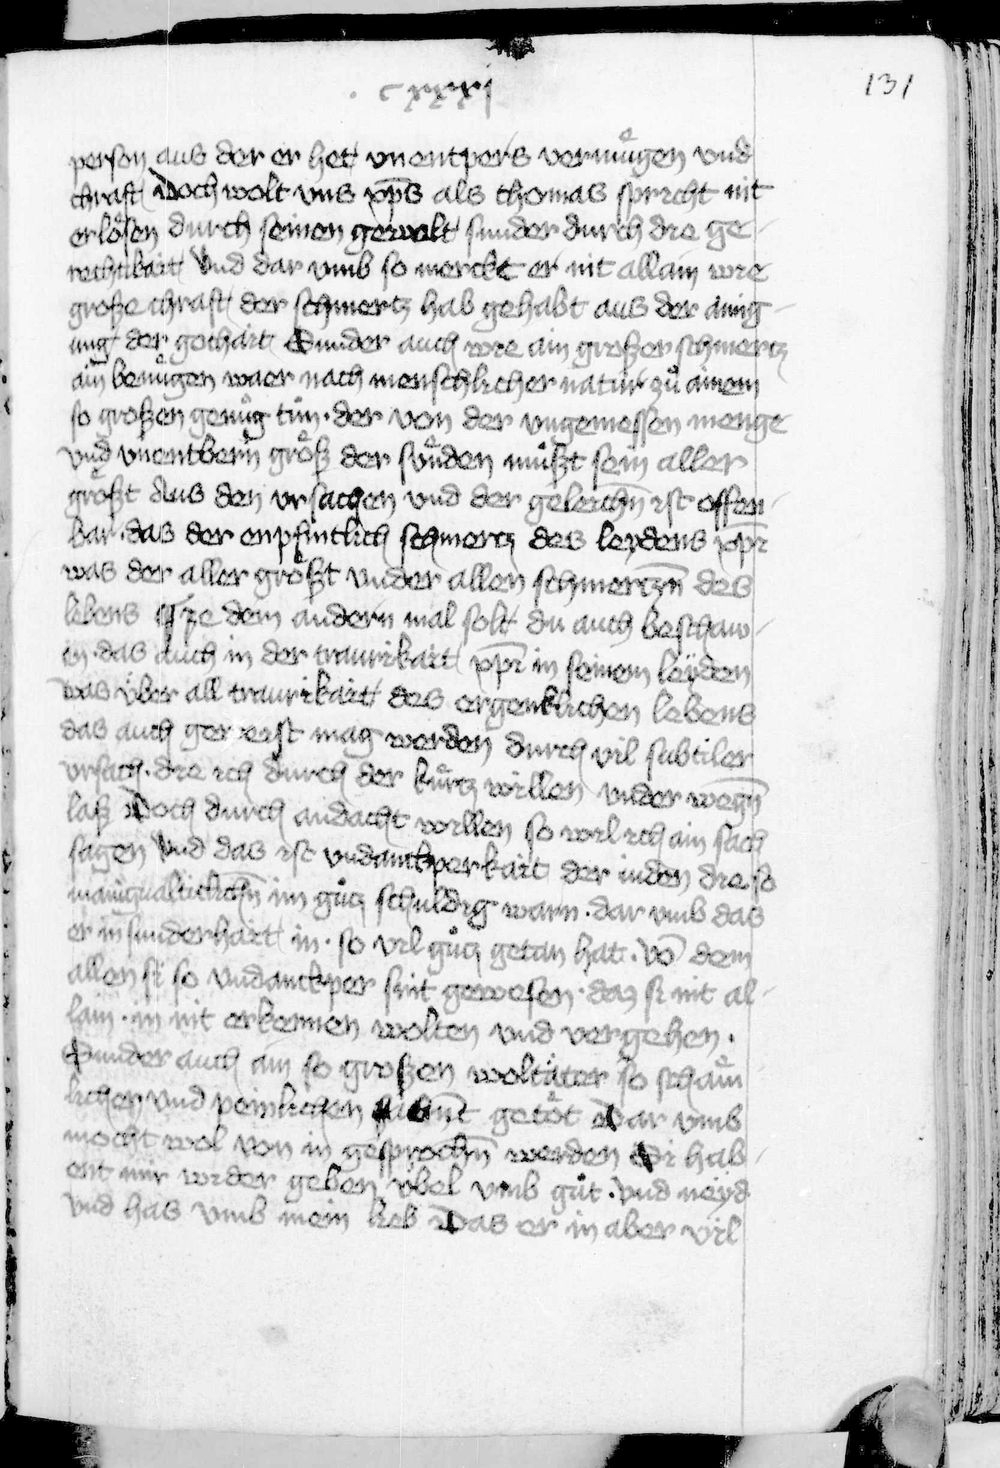 cxxxj
131
person aus der er het vnentpers vermuͤgen vnd
chraft Doch wolt vns xp̄s als thomas spricht nit
erloͤsen durch seinen gewalt sunder durch die ge-
rechtikait Vnd dar vmb so merckt er nit allain wie
große chraft der schmertz hab gehabt aus der ainig-
ung der gothait Sunder auch wie ain großer schmertz
ain benuͤgen waer nach menschlicher natur zů ainem
so großen genůg tůn · der von der vngemessen menge
vnd vnentbern groͤß der suͤnden muͤßt sein aller
groͤßt Aus den vrsachen vnd der geleichn̄ ist offen-
bar · das der enpfintlich schmertz des leydens xp̄i
was der aller groͤßt vnder allen schmertzn̄ des
lebens Ze dem andern mal solt du auch beschaw-
en · das auch in der traurikait xp̄i in seinem leÿden
was über all traurikait des ergenklichen lebens
das auch ger eist mag werden durch vil subtiler
vrsach · die ich durch der kuͤrtz willen vnder wegn̄
laß Doch durch andacht willen so wil ich ain sach
sagen Vnd das ist vndanckperkait der iuden die so
manigualtiklichn̄ im gůtz schuldig warn · dar vmb das
er in sunderhait in · so vil gůtz getan hat · Vō dem
allen si so vndanckper sint gewesen · daz si nit al-
lain · in nit erkennen wolten vnd vergehen ·
Sunder auch ain so großen woltäter so schaͤm
lichen vnd peinlichen habn̄t getoͤt Dar vmb
mocht wol von in gesprochn̄ werden Si hab-
ent mir wider geben übel vmb gůt · vnd neÿd
vnd has vmb mein lieb Das er in aber vil